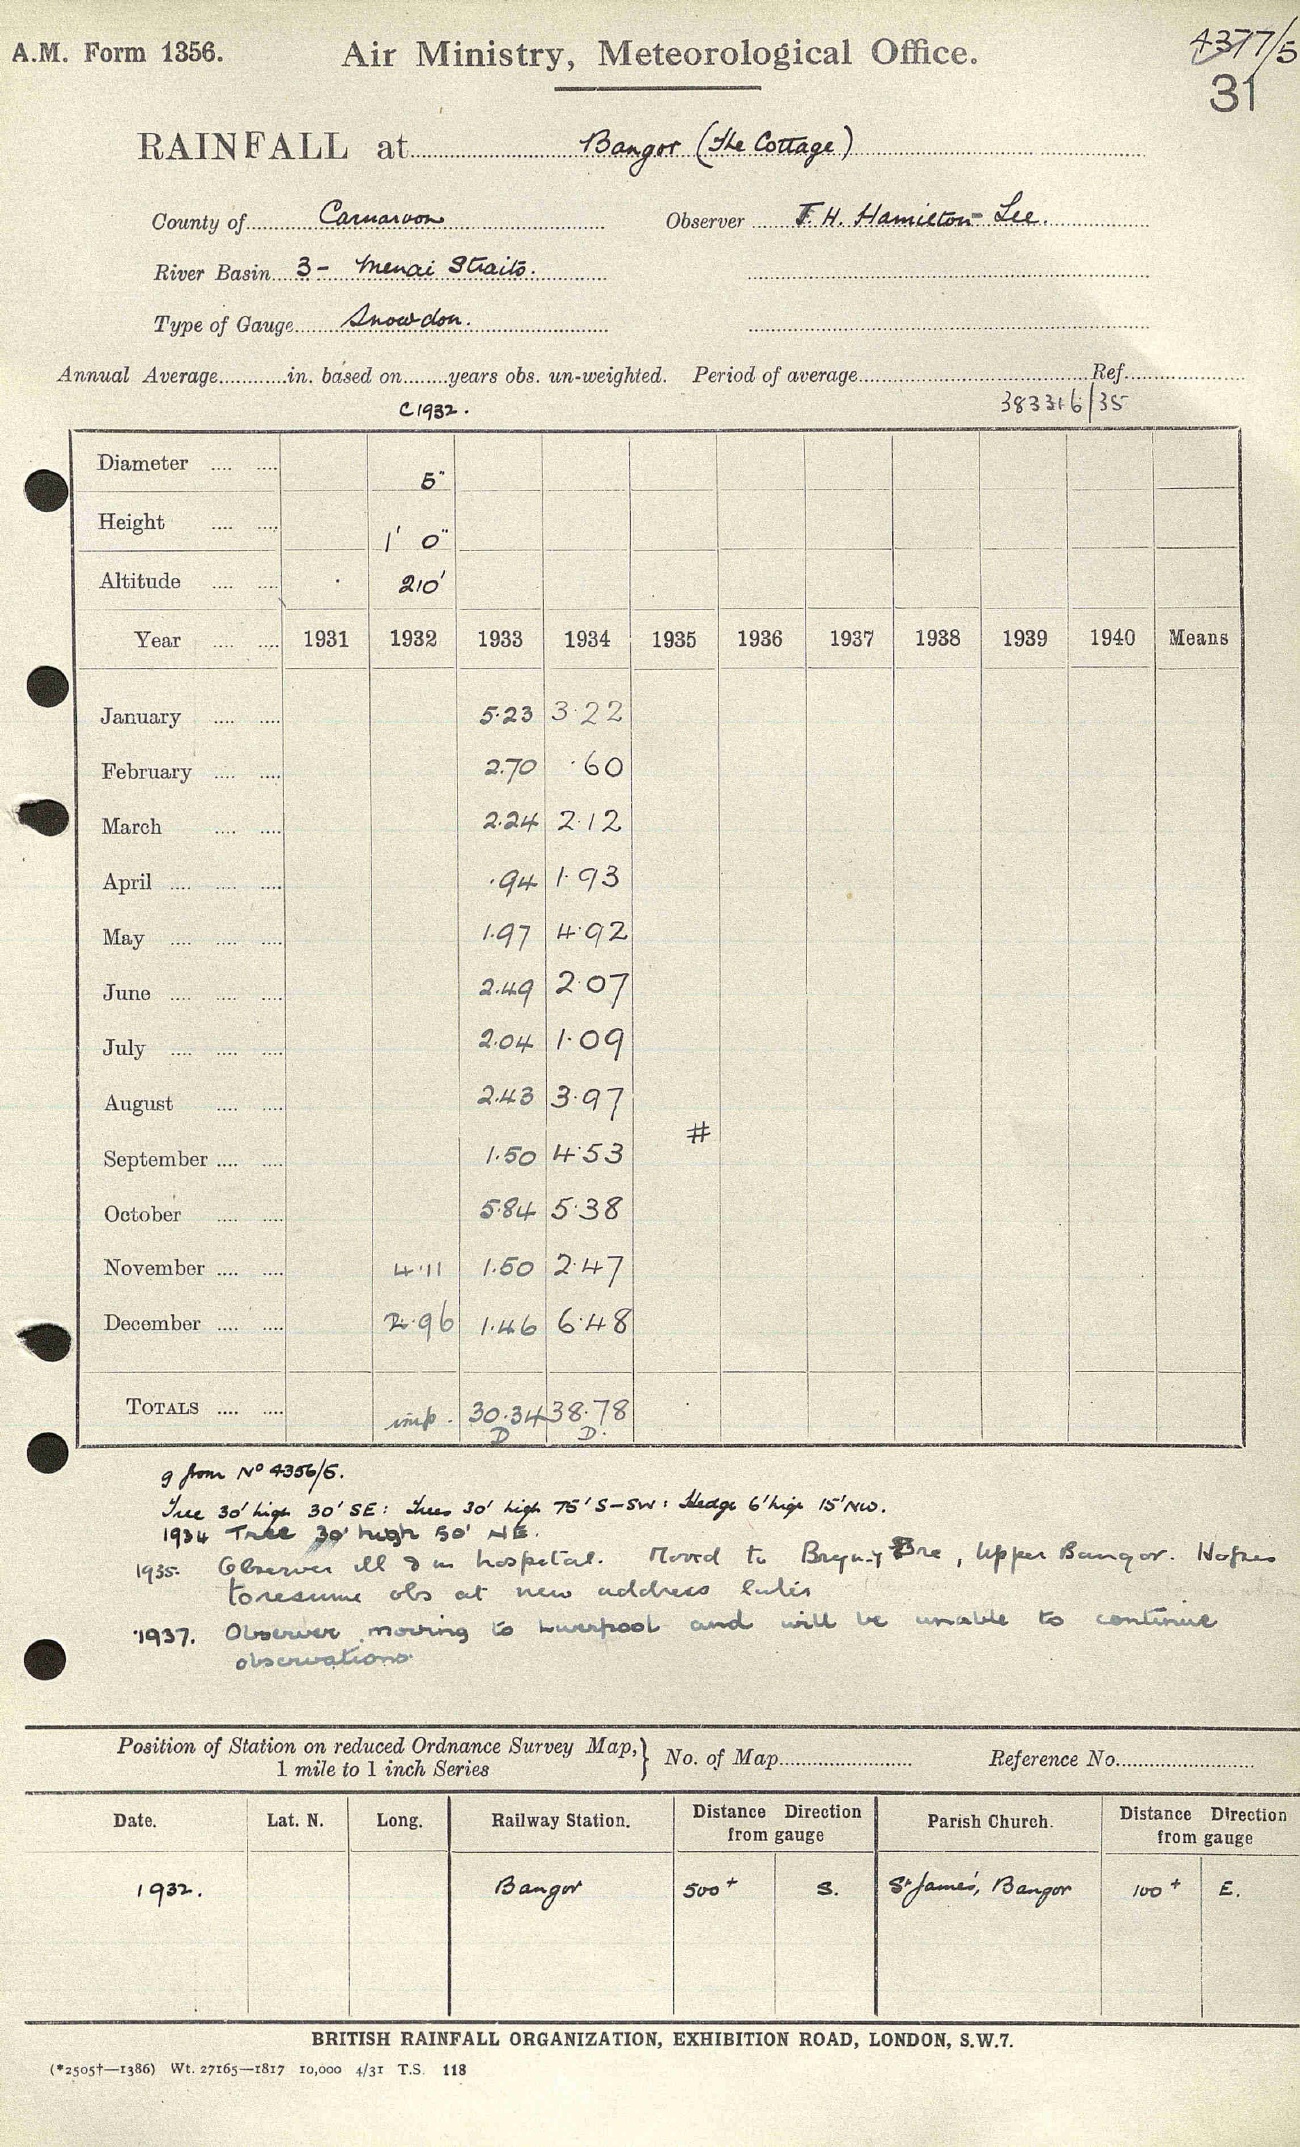 A.M. Form 1356. Air Ministry, Meteorological Office. 4377/5
31
RAINFALL at Bangor (The Cottage)
County of Carnarvon Observer F. H. Hamilton-Lee.
River Basin 3 - Menai Straits.
Type of Gauge Snowdon.
Annual Average in. based on years obs. un-weighted. Period of average Ref.
C1932. 383316/35
Diameter 5"
Height 1' 0"
Altitude 210'
Year 1931 1932 1933 1934 1935 1936 1937 1938 1939 1940 Means
January 5.23 3.22
February 2.70 .60
March 2.24 2.12
April .94 1.93
May 1.97 4.92
June 2.49 2.07
July 2.04 1.09
August 2.43 3.97
#
September 1.50 4.53
October 5.84 5.38
November 4.11 1.50 2.47
December 2.96 1.46 6.48
TOTALS imp. 30.34 38.78
D D.
g from No 4356/5.
Tree 30' high 30' SE: Trees 30' high 75' S-SW: Hedge 6' high 15' NW.
1934 Tree 30' high 50' NE.
1935. Observer ill & in hospital. Moved to Upper Bangor. Hopes
to resume obs at new address later
1937. Observer moving to Liverpool and will be unable to continue
observations.
Position of Station on reduced Ordnance Survey Map, } No. of Map Reference No.
1 mile to 1 inch Series
Date. Lat. N. Long. Railway Station. Distance Direction from gauge Parish Church. Distance Direction from gauge
1932. Bangor 500+ S. St James', Bangor 100+ E.
BRITISH RAINFALL ORGANIZATION, EXHIBITION ROAD, LONDON, S.W.7.
(*2505†—1386) Wt. 27165—1817 10,000 4/31 T.S. 118